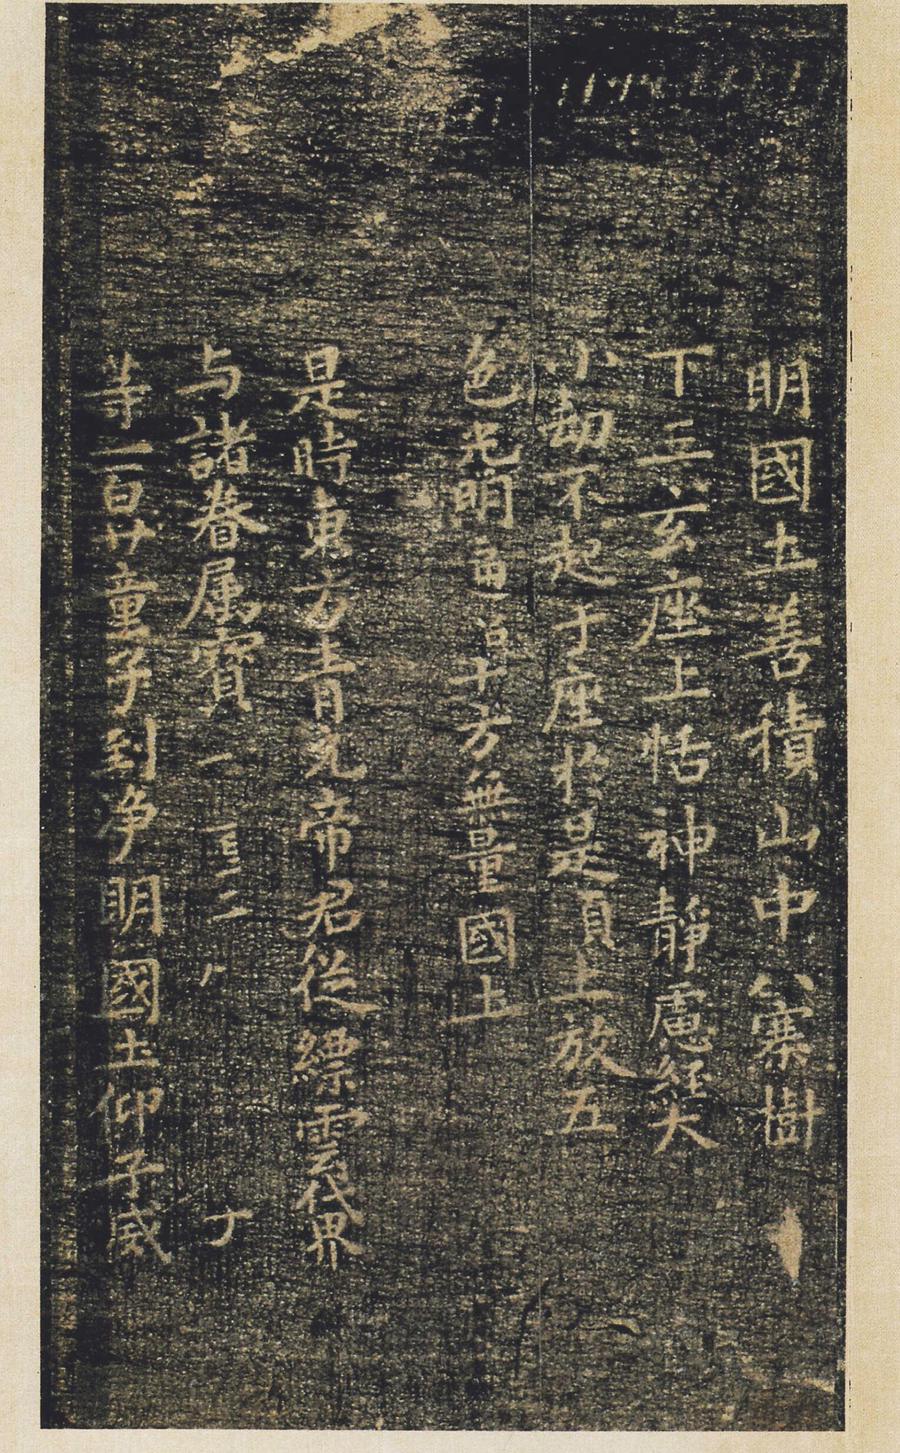 明國土善積山中騫樹
下五玄座上恬神靜慮經大
小劫不起于座於是頂上放五
色光明十方無量國土
是時東方青元帝君從縹雲茂界
与諸眷属寶
等一百廿童子到净明國土仰子威